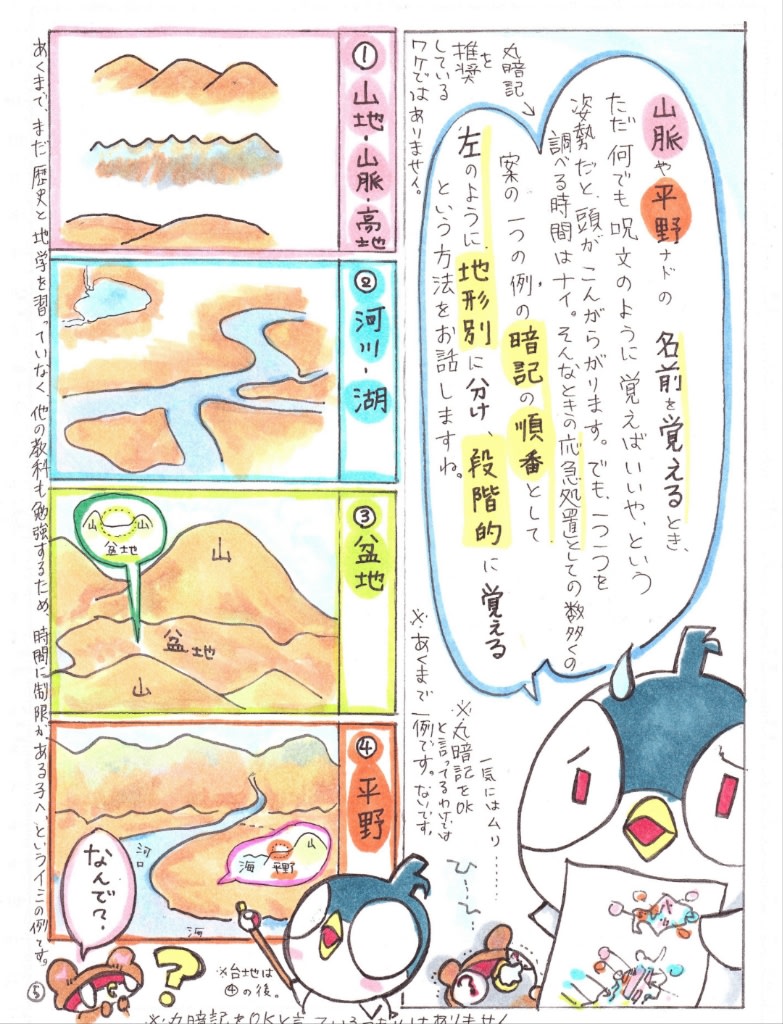 山脈や平野ナドの名前を覚えるとき、
ただ何でも呪文のように覚えばいいや、という
姿勢だと、頭がこんがらがります。でも、一つ一つを
調べる時間はナイ。そんなときの応急処置としての数多くの
案の一つの例の暗記の順番として
左のように、地形別に分け、段階的に覚える
という方法をお話しますね。
丸暗記
を
推奨
している
ワケではありません。
※あくまで一例です。
※丸暗記をOK
と言ってるわけでは
ないです。
一気にはムリ……
ひーひー…
①山地・山脈・高地
②河川・湖
③盆地
山
山
盆地
山
盆地
山
④平野
河口
海
海
平野
山
なんで?
?
※台地は
④の後。
あくまで、まだ歴史と地学を習っていなく、他の教科も勉強するため、時間に制限がある子へ、というイミの例です。
⑤
※丸暗記をOKと言っているつもりはありません